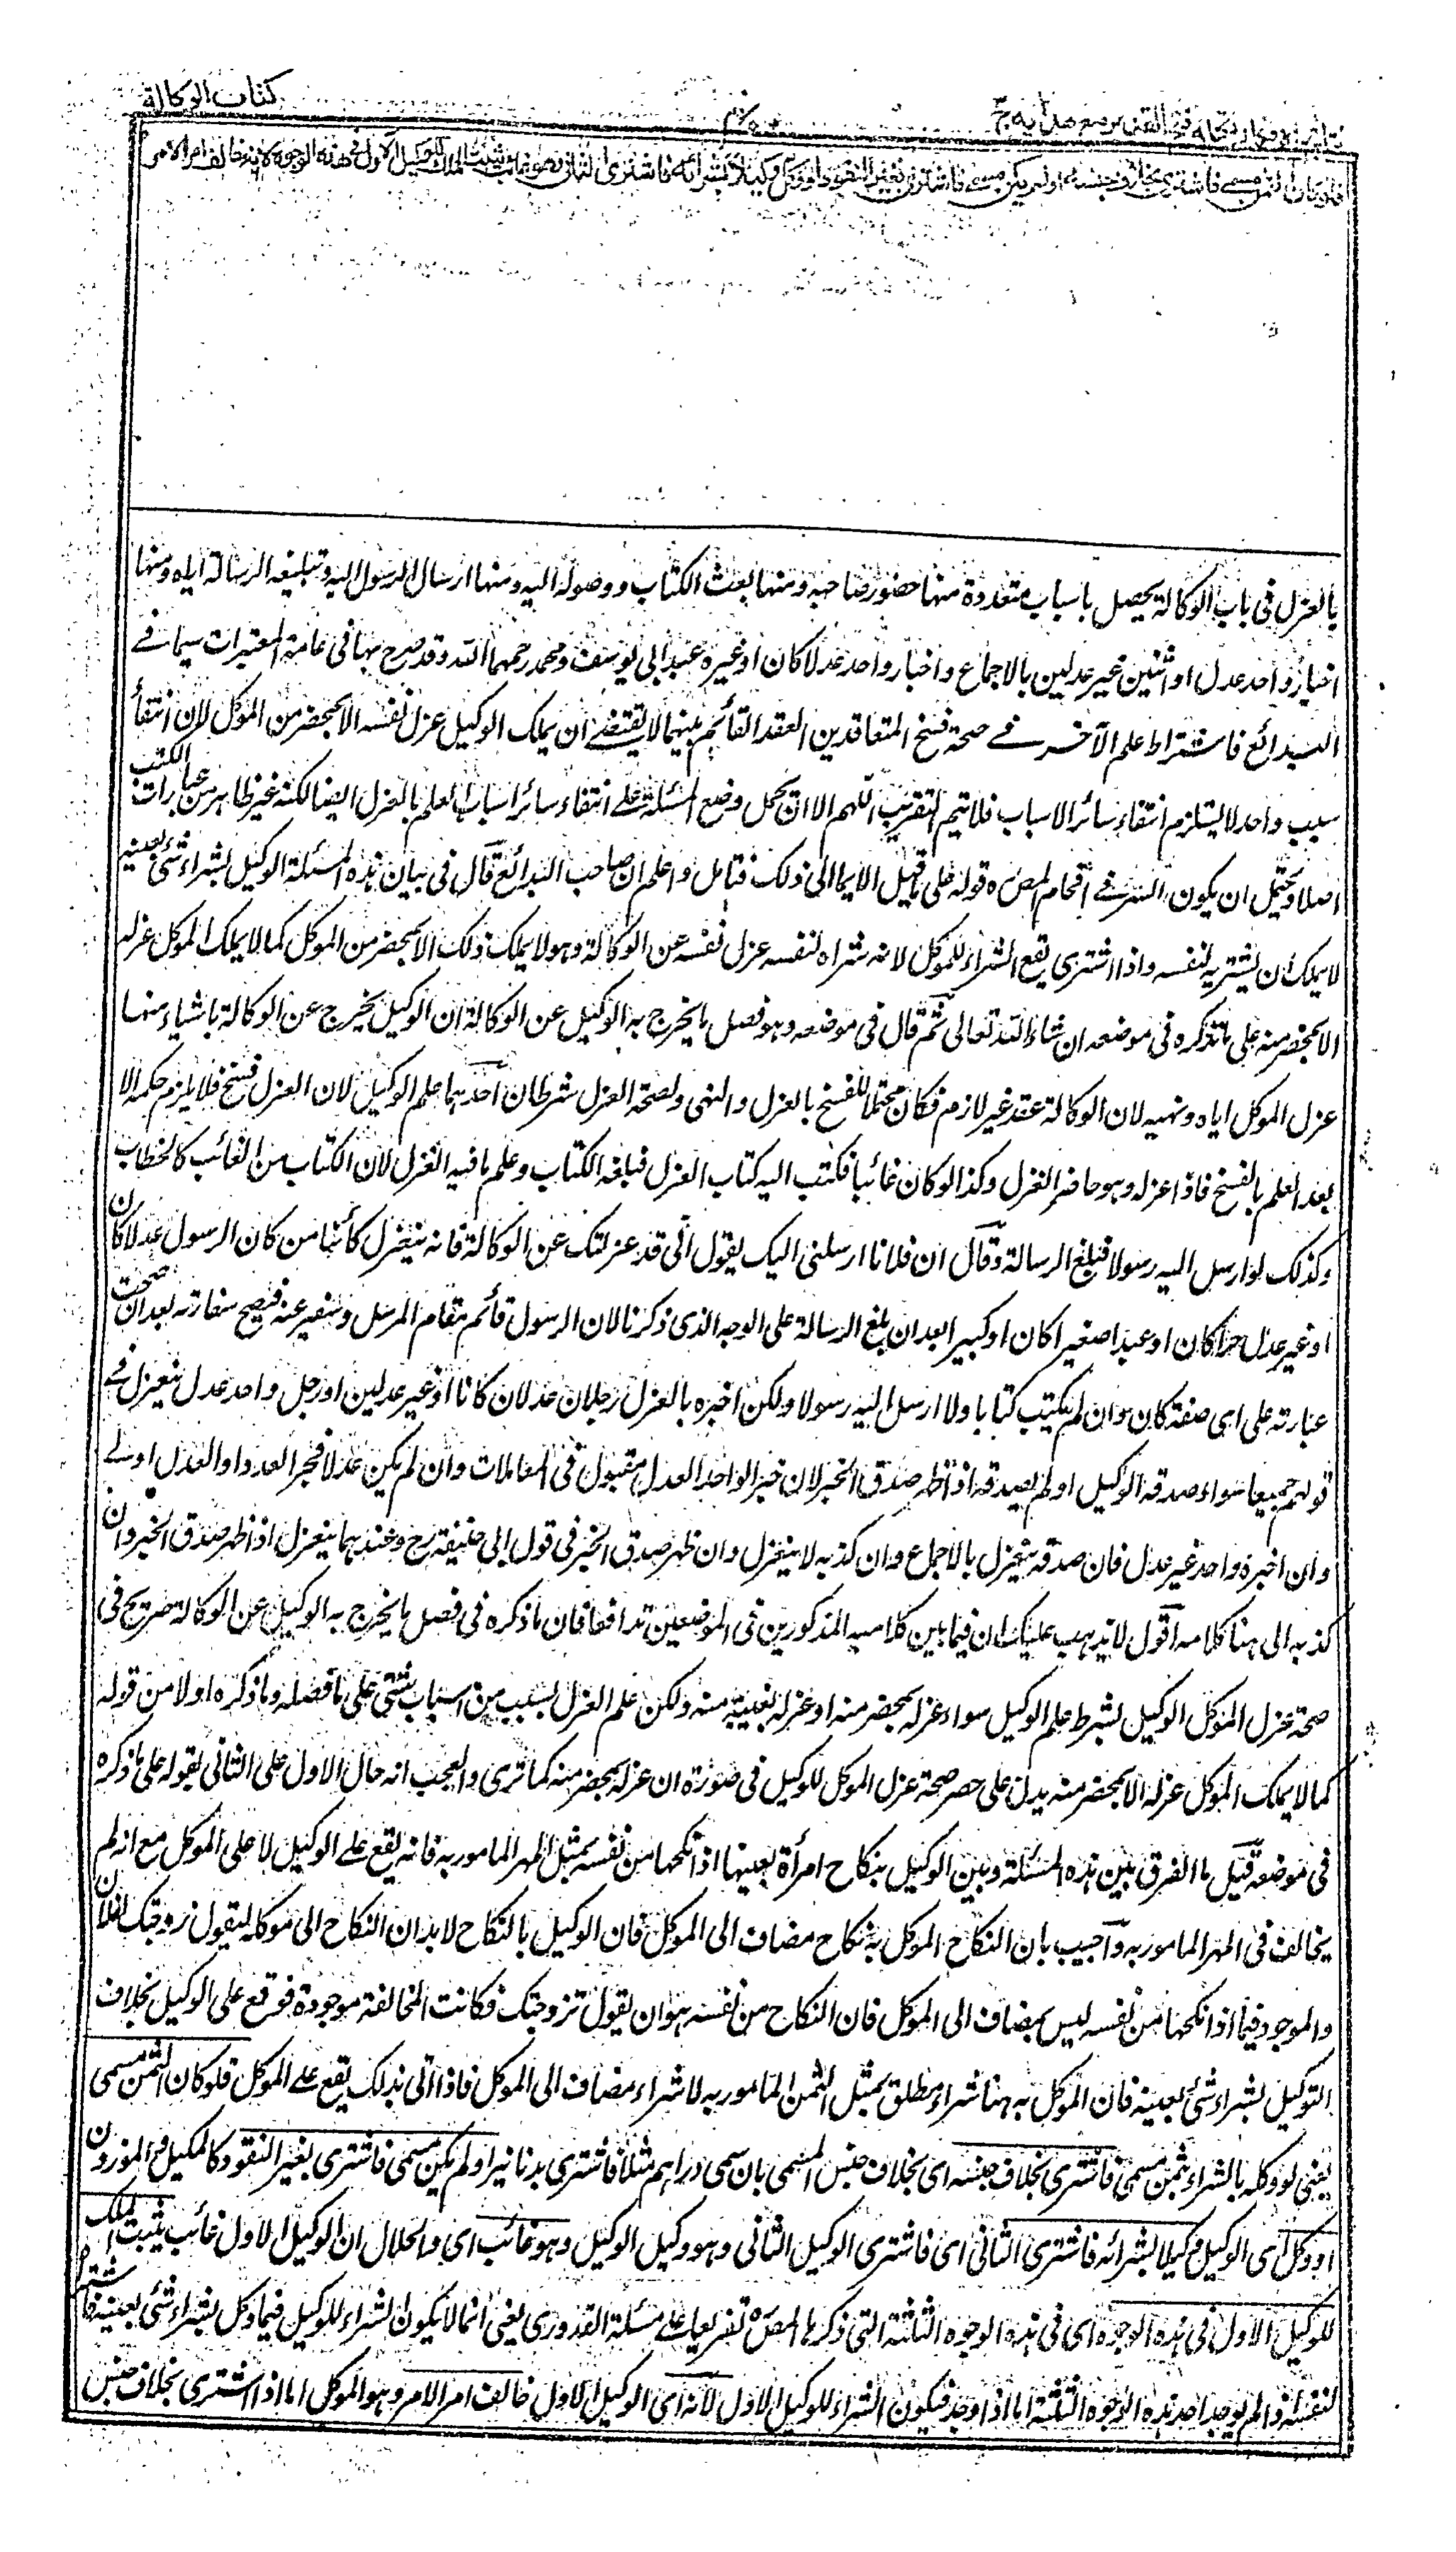 كتاب الوكالة
فلو كان الثمن مسمى فاشترى بخلاف جنسه او لم يكن مسمى فاشترى بغير النقود او وكل وكيلا بشرائه فاشترى الثانى وهو غائب يثبت الملك للوكيل الاول فى هذه الوجوه لانه خالف امر الآمر
بالعزل فى باب الوكالة يحصل باسباب متعددة منها حضور صاحبه ومنها بعث الكتاب ووصوله اليه ومنها ارسال الرسول اليه وتبليغه الرسالة اياه ومنها
اخبار واحد عدل او اثنين غير عدلين بالاجماع و اخبار واحد عدلا كان او غيره عند ابى يوسف ومحمد رحمهما الله وقد صرح بها فى عامة المعتبرات سيما فے
البدائع فاشتراط علم الآخر فے صحة فسخ المتعاقدين العقد القائم بينهما لا يقتضے ان يملك الوكيل عزل نفسه الا بمحضر من الموكل لان انتفاء
سبب واحد لا يستلزم انتفاء سائر الاسباب فلا يتم التقريب اللهم الا ان يحمل وضع المسئلة علے انتفاء سائر اسباب العلم بالعزل ايضا لكنه غير ظاهر من عبارات الكتب
اصلا ويحتمل ان يكون السر فے اقحام المص ره قوله على ما قيل الايما الى ذلك فتامل واعلم ان صاحب البدائع قال فى بيان هذه المسئلة الوكيل بشراء شئ بعينه
لا يملك ان يشتريه لنفسه واذا اشترى يقع الشراء للموكل لانه شراه لنفسه عزل نفسه عن الوكالة وهو لا يملك ذلك الا بمحضر من الموكل كما لا يملك الموكل عزله
الا بمحضر منه على ما نذكره فى موضعه ان شاء الله تعالى ثم قال فى موضعه وهو فصل ما يخرج به الوكيل عن الوكالة ان الوكيل يخرج عن الوكالة باشياء منها
عزل الموكل اياه ونهيه لان الوكالة عقد غير لازم فكان محتملا للفسخ بالعزل والنهى ولصحة العزل شرطان احدهما علم الوكيل لان العزل فسخ فلا يلزم حكمه الا
بعد العلم بالفسخ فاذا عزله وهو حاضر انعزل وكذا لو كان غائبا فكتب اليه كتاب العزل فبلغه الكتاب وعلم ما فيه انعزل لان الكتاب من الغائب كالخطاب
وكذلك لو ارسل اليه رسولا فبلغ الرسالة وقال ان فلانا ارسلنى اليك يقول انى قد عزلتك عن الوكالة فانه ينعزل كائنا من كان الرسول عدلا كان
او غير عدل حرا كان او عبدا صغيرا كان او كبيرا بعد ان بلغ الرسالة على الوجه الذى ذكرنا لان الرسول قائم مقام المرسل وسفير عنه فيصح سفارته بعد ان صحت
عبارته على اى صفة كان وان لم يكتب كتابا ولا ارسل اليه رسولا ولكن اخبره بالعزل رجلان عدلان كانا او غير عدلين او رجل واحد عدل ينعزل فے
قولهم جميعا سواء صدقه الوكيل او لم يصدقه اذا ظهر صدق الخبر لان خبر الواحد العدل مقبول فى المعاملات وان لم يكن عدلا فخبر العدد او العدل اولے
وان اخبره واحد غير عدل فان صدقه ينعزل بالاجماع وان كذبه لا ينعزل وان ظهر صدق الخبر فى قول ابى حنيفة رح وعندهما ينعزل اذا ظهر صدق الخبر وان
كذبه الى هنا كلامه اقول لا يذهب عليك ان فيما بين كلاميه المذكورين فى الموضعين تدافعا فان ما ذكره فى فصل ما يخرج به الوكيل عن الوكالة صريح فى
صحة عزل الموكل الوكيل بشرط علم الوكيل سواء عزله بمحضر منه او عزله بغيبة منه ولكن علم العزل بسبب من اسباب شتى على ما فصله وما ذكره اولا من قوله
كما لا يملك الموكل عزله الا بمحضر منه يدل على حصر صحة عزل الموكل للوكيل فى صورة ان عزله بمحضر منه كما ترى والعجب انه حال الاول على الثانى بقوله على ما ذكره
فى موضعه قيل ما الفرق بين هذه المسئلة وبين الوكيل بنكاح امرأة بعينها اذا نكحها من نفسه بمثل المهر المامور به فانه يقع علے الوكيل لا على الموكل مع انه لم
يخالف فى المهر المامور به واجيب بان النكاح الموكل به نكاح مضاف الى الموكل فان الوكيل بالنكاح لا بد ان النكاح الى موكله ليقول زوجتك لفلان
والموجود فيما اذا انكحها من نفسه ليس بمضاف الى الموكل فان النكاح من نفسه هو ان يقول تزوجتك فكانت المخالفة موجودة فوقع على الوكيل بخلاف
التوكيل بشراء شئ بعينه فان الموكل به هنا شراء مطلق بمثل الثمن المامور به لا شراء مضاف الى الموكل فاذا اتى بذلك يقع علے الموكل فلو كان الثمن مسمى
يعنى لو وكله بالشراء بثمن مسمى فاشترى بخلاف جنسه اى بخلاف جنس المسمى بان سمى دراهم مثلا فاشترى بدنانير او لم يكن مسمى فاشترى بغير النقود كالمكيل والموزون
او وكل اى الوكيل وكيلا بشرائه فاشترى الثانى اى فاشترى الوكيل الثانى وهو وكيل الوكيل وهو غائب اى والحال ان الوكيل الاول غائب يثبت الملك
للوكيل الاول فى هذه الوجوه اى فى هذه الوجوه الثلثة التى ذكرها المص ره تفريعا علے مسئلة القدورى يعنى انما لا يكون الشراء للوكيل فيما وكل بشراء شئ بعينه فاشتراه
لنفسه اذا لم يوجد احد هذه الوجوه الثلثة اما اذا وجد فيكون الشراء للوكيل الاول لانه اى الوكيل الاول خالف امر الآمر وهو الموكل اما اذا اشترى بخلاف جنس